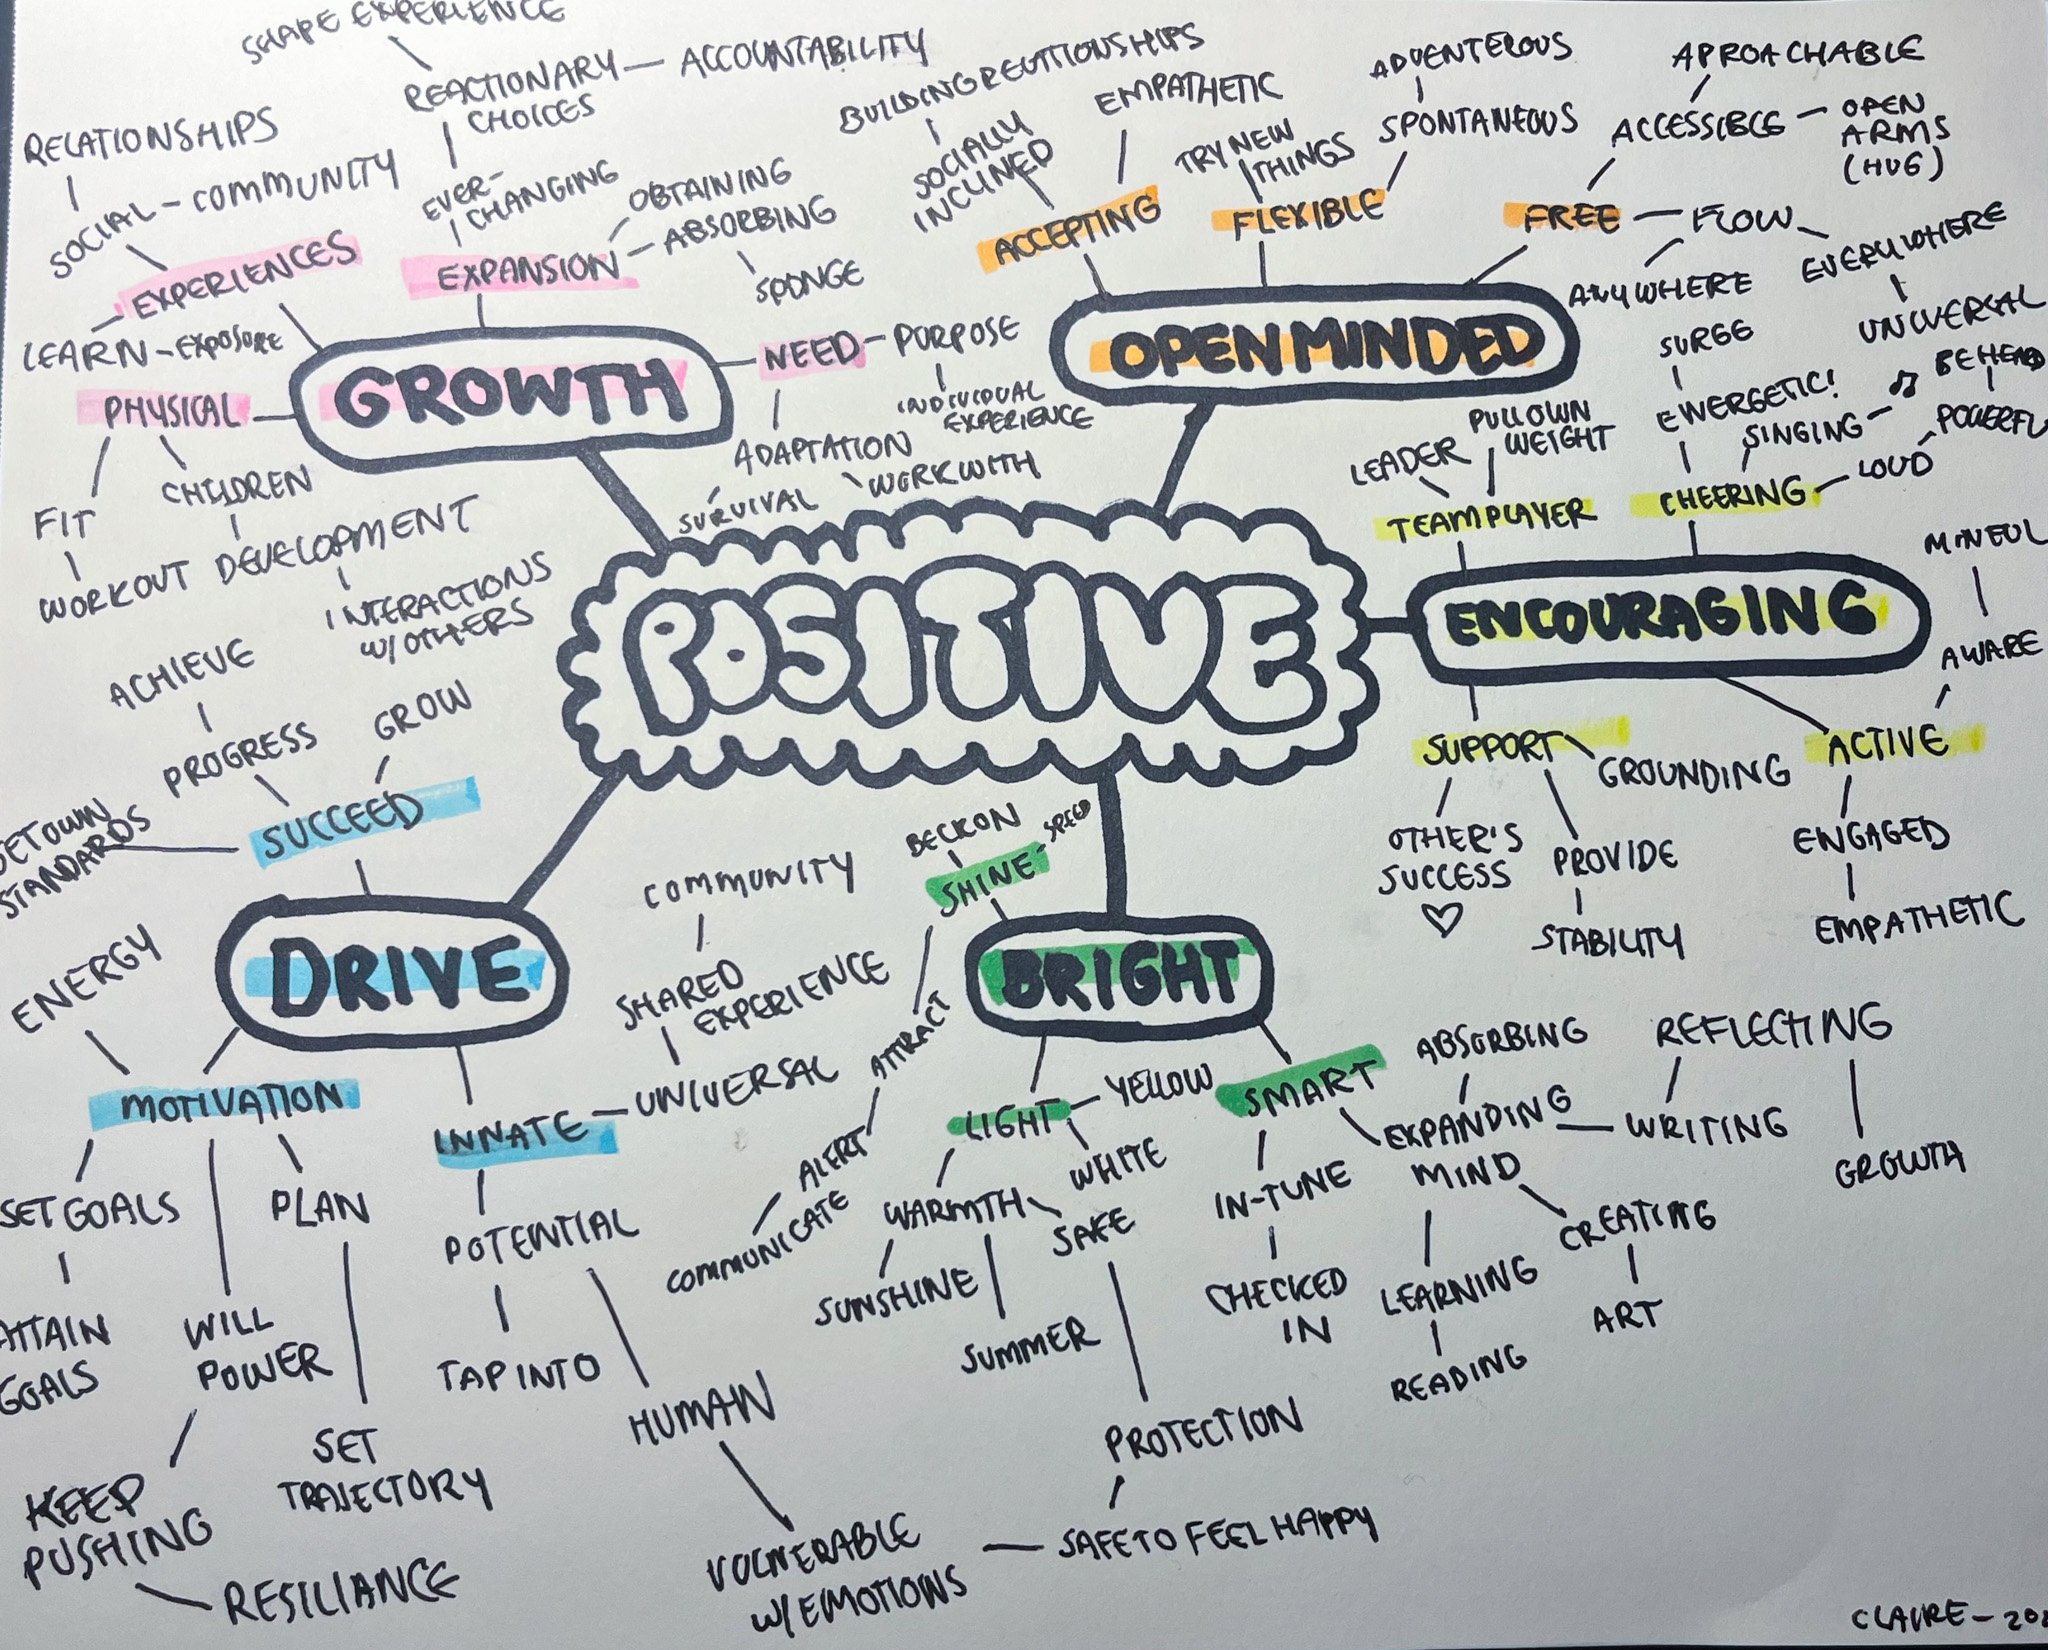 SHAPE EXPERIENCE
REACTIONARY
CHOICES
ACCOUNTABILITY
RELATIONSHIPS
SOCIAL - COMMUNITY
EVER-
CHANGING
OBTAINING
ABSORBING
SPONGE
EXPERIENCES
EXPANSION
LEARN - EXPOSURE
GROWTH
NEED
PURPOSE
INDIVIDUAL
EXPERIENCE
PHYSICAL
ADAPTATION
SURVIVAL
WORK WITH
FIT
CHILDREN
WORKOUT
DEVELOPMENT
INTERACTIONS
W/ OTHERS
BUILDING RELATIONSHIPS
SOCIALLY
INCLINED
EMPATHETIC
ACCEPTING
TRY NEW
THINGS
FLEXIBLE
ADVENTEROUS
SPONTANEOUS
APROACHABLE
ACCESSIBLE
OPEN
ARMS
(HUG)
FREE
FLOW
ANYWHERE
EVERYWHERE
UNIVERSAL
OPEN MINDED
SURGE
ENERGETIC!
SINGING
BE HEARD
POWERFUL
LOUD
LEADER
PULL OWN
WEIGHT
TEAM PLAYER
CHEERING
POSITIVE
ENCOURAGING
MINFUL
AWARE
SUPPORT
GROUNDING
ACTIVE
OTHER'S
SUCCESS
PROVIDE
STABILITY
ENGAGED
EMPATHETIC
ACHIEVE
PROGRESS
GROW
SET OWN
STANDARDS
SUCCEED
DRIVE
ENERGY
MOTIVATION
INNATE
UNIVERSAL
SHARED
EXPERIENCE
COMMUNITY
SET GOALS
ATTAIN
GOALS
WILL
POWER
PLAN
SET
TRAJECTORY
KEEP
PUSHING
RESILIANCE
POTENTIAL
TAP INTO
HUMAN
VULNERABLE
W/ EMOTIONS
SAFE TO FEEL HAPPY
PROTECTION
BECKON
SHINE - SPEED
BRIGHT
ATTRACT
ALERT
COMMUNICATE
LIGHT
YELLOW
WHITE
WARMTH
SAFE
SUNSHINE
SUMMER
SMART
IN-TUNE
CHECKED
IN
ABSORBING
EXPANDING
MIND
WRITING
REFLECTING
GROWTH
CREATING
ART
LEARNING
READING
CLAIRE -